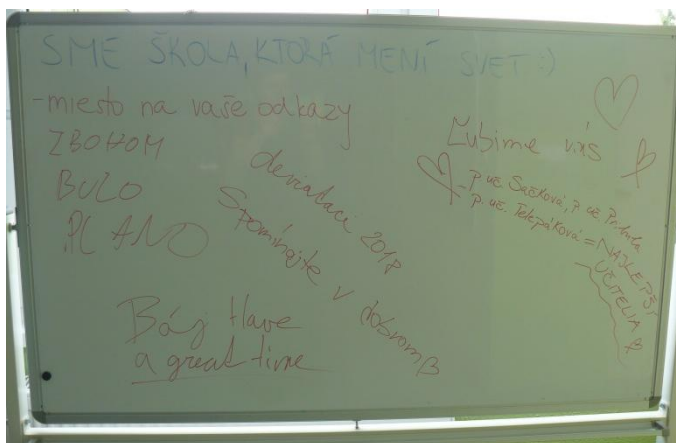 SME ŠKOLA, KTORÁ MENÍ SVET :)
- miesto na vaše odkazy
ZBOHOM
BULO
PLANO
deviataci 2018
Spomínajte v dobrom
Báj Have
a great time
Ľúbime vás
- p. uč. Sačková, p. uč.
p. uč. Telepáková = NAJLEPŠÍ
UČITELIA